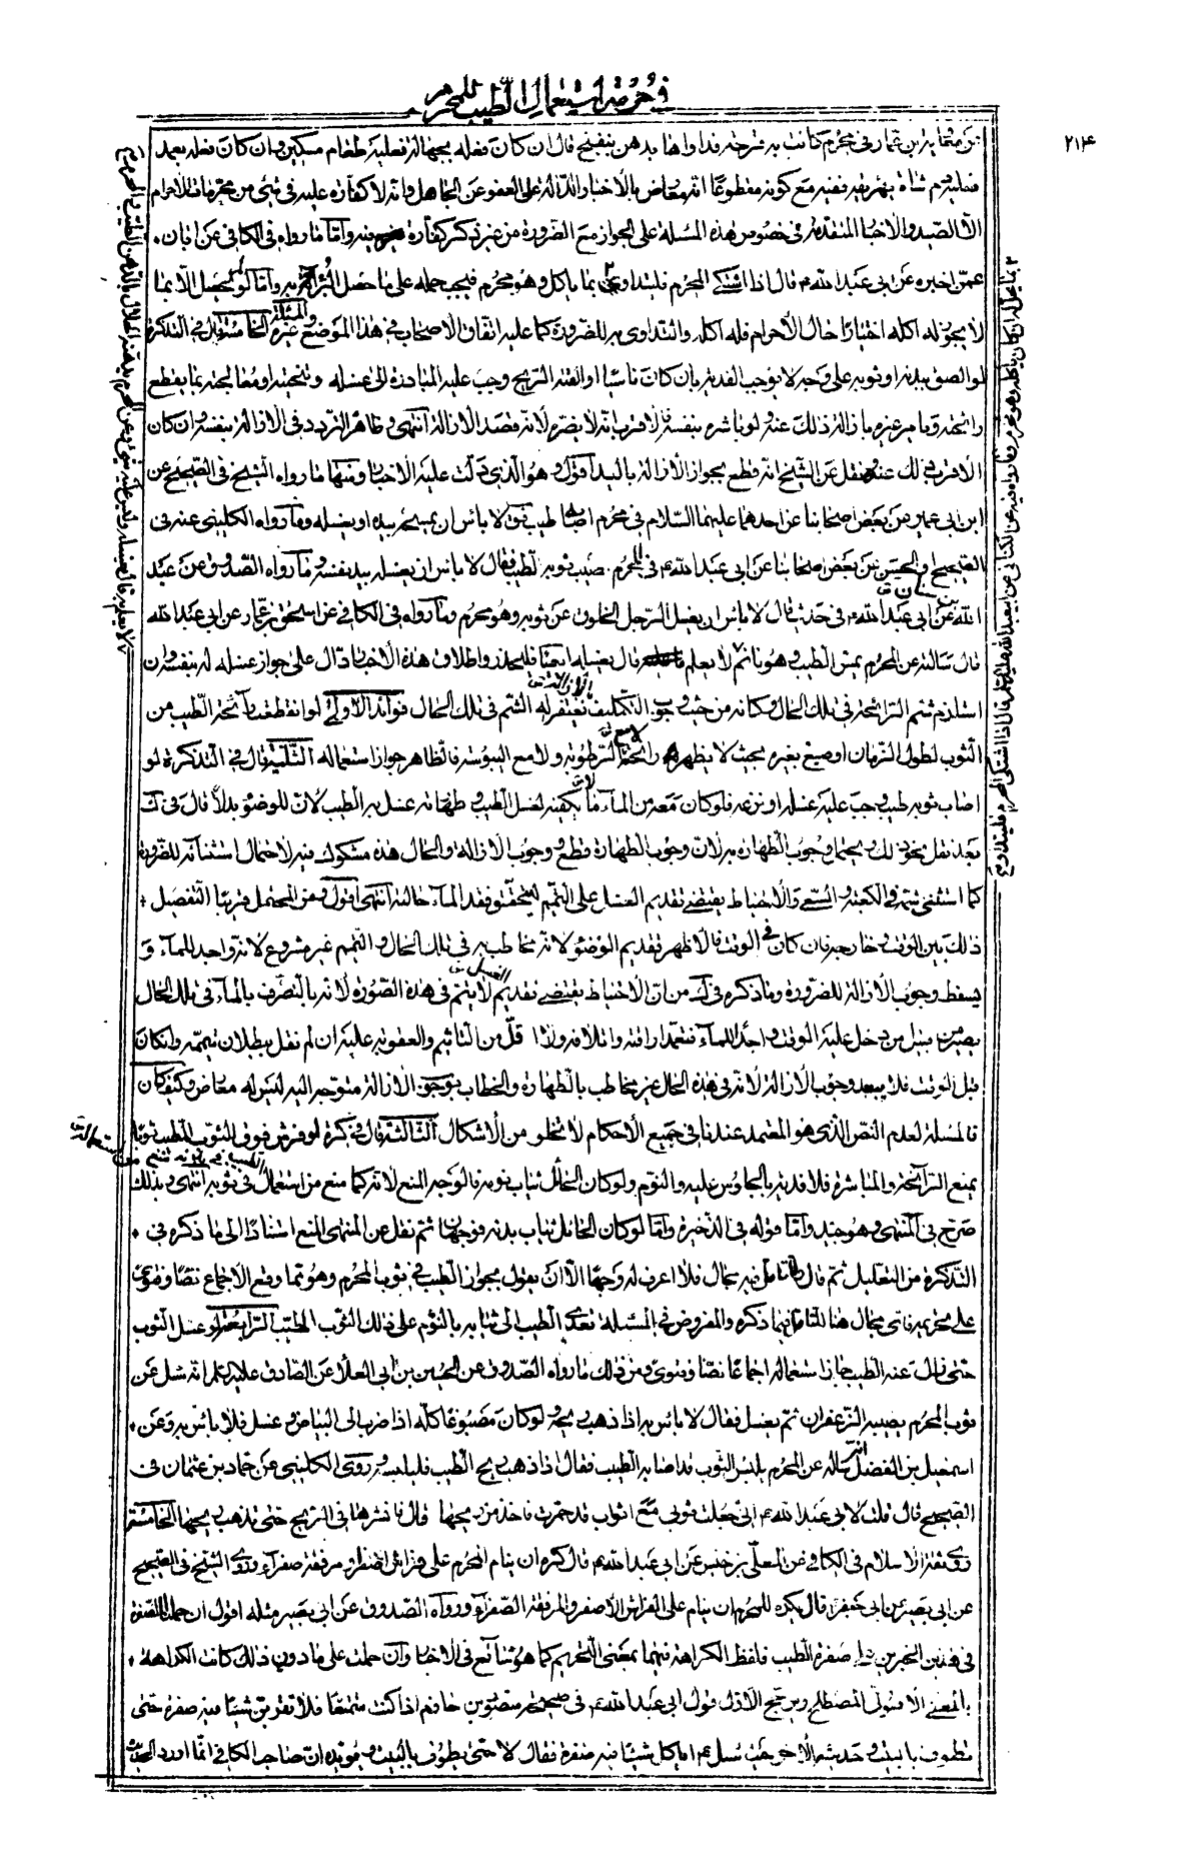 في حرمة استعمال الطيب للمحرم
٢١۴
عن معاوية بن عمار في محرم كانت به قرحة فداواها بدهن بنفسج قال ان كان فعله بجهالة فعليه طعام مسكين وان كان فعله بعمد
فعليه دم شاة يهريقه ففيه مع كونه مقطوعا انه معارض بالاخبار الدالة على العفو عن الجاهل وانه لا كفارة عليه في شئ من محرمات الاحرام
الا الصيد والاخبار المتقدمة في خصوص هذه المسئلة على الجواز مع الضرورة من غير ذكر كفارة فيه واما ما رواه في الكافي عن ابان
عمن اخبره عن ابي عبد الله ع قال اذا اشتكى المحرم فليتداو بما ياكل وهو محرم فيجب حمله على ما حصل به واما لو لم يحصل الا بما
لا يجوز له اكله اختيارا حال الاحرام فله اكله والتداوي به للضرورة كما عليه اتفاق الاصحاب في هذا الموضع وغيره الخامسة قال في التذكرة
لو الصق ببدنه او ثوبه على وجه لا يوجب الفدية بان كان ناسيا او القته الريح وجب عليه المبادرة الى غسله وتنحيته او معالجته بما يقطع
رائحته ويامر غيره بازالة ذلك عنه ولو باشره بنفسه فالاقرب انه لا يضره لانه قصد الازالة انتهى وظاهره التردد في الازالة بنفسه وان كان
الاقرب ذلك عنده ونقل عن الشيخ انه قطع بجواز الازالة باليد اقول وهو الذي دلت عليه الاخبار ومنها ما رواه الشيخ في الصحيح عن
ابن ابي عمير عن بعض اصحابنا عن احدهما عليهما السلام في محرم اصابه طيب فقال لا باس ان يمسحه بيده او يغسله وما رواه الكليني عنه في
الصحيح او الحسن عن بعض اصحابنا عن ابي عبد الله ع في المحرم يصيب ثوبه الطيب فقال لا باس ان يغسله بيد نفسه وما رواه الصدوق عن عبد
الله بن سنان عن ابي عبد الله ع في حديث قال لا باس ان يغسل الرجل الخلوق عن ثوبه وهو محرم وما رواه في الكافي عن اسحق بن عمار عن ابي عبد الله
قال سالته عن المحرم يمس الطيب وهو نائم لا يعلم قال يغسله ايضا فليحذر واطلاق هذه الاخبار دال على جواز غسله له بنفسه وان
استلزم شم الرائحة في تلك الحال وكانه من حيث وجوب التكليف بالازالة فيغتفر له الشم في تلك الحال فوائد الاولى لو انقطعت رائحة الطيب من
الثوب لطول الزمان او صبغ بغيره بحيث لا يظهر له رائحة لا مع الرطوبة ولا مع اليبوسة فالظاهر جواز استعماله الثانية قال في التذكرة لو
اصاب ثوبه طيب وجب عليه غسله او نزعه فلو كان معه من الماء ما لا يكفيه لغسل الطيب وطهارته غسل به الطيب لان للوضوء بدلا قال في ك
بعد نقل نحو ذلك ويحتمل وجوب الطهارة به لان وجوب الطهارة قطعي ووجوب الازالة والحال هذه مشكوك فيه لاحتمال استثنائه للضرورة
كما استثنى شمه في الكعبة والسعي والاحتياط يقتضي تقديم الغسل على التيمم ليتحقق فقد الماء حالته انتهى اقول ومن المحتمل قريبا التفصيل في
ذلك بين الوقت وخارجه فان كان في الوقت فالاظهر تقديم الوضوء لانه مخاطب به في تلك الحال والتيمم غير مشروع لانه واجد للماء و
يسقط وجوب الازالة للضرورة وما ذكره في ك من ان الاحتياط يقتضي تقديم الغسل لا يتم في هذه الصورة لانه بالتصرف بالماء في تلك الحال
يصير من قبيل من دخل عليه الوقت واجدا للماء فتعمد اراقته واتلافه ولا اقل من التاثيم والعقوبة عليه ان لم نقل ببطلان تيممه وان كان
قبل الوقت فلا يبعد وجوب الازالة لانه في هذه الحال غير مخاطب بالطهارة والخطاب بوجوب الازالة متوجه اليه ليس له معارض وكيف كان
فالمسئلة لعدم النص الذي هو المعتمد عندنا في جميع الاحكام لا تخلو من الاشكال الثالثة قال في كرة لو فرش فوق الثوب المطيب ثوبا
يمنع الرائحة والمباشرة فلا فدية بالجلوس عليه والنوم ولو كان الحائل ثياب نومه فالوجه المنع لانه كما منع من استعمال الطيب في بدنه منع من استعماله في ثوبه انتهى وبذلك
صرح في المنتهى وهو جيد واما قوله في الذخيرة واما لو كان الحائل ثياب بدنه فوجهان ثم نقل عن المنتهى المنع استنادا الى ما ذكره في
التذكرة من التعليل ثم قال وللتامل فيه مجال فلا اعرف له وجها الا ان يقول بجواز الطيب في ثوب المحرم وهو مما وقع الاجماع نصا وفتوى
على تحريمه فاي مجال هنا للتامل فيما ذكره والمفروض في المسئلة تعدي الطيب الى ثيابه بالنوم على ذلك الثوب المطيب الرابعة لو غسل الثوب
حتى زالت عنه الطيب جاز استعماله اجماعا نصا وفتوى ومن ذلك ما رواه الصدوق عن الحسين بن ابي العلا عن الصادق عليه السلم انه سئل عن
ثوب المحرم يصيبه الزعفران ثم يغسل فقال لا باس به اذا ذهب ريحه ولو كان مصبوغا كله اذا ضرب الى البياض وغسل فلا باس به وعن
اسمعيل بن الفضل انه ساله عن المحرم يلبس الثوب قد اصابه الطيب فقال اذا ذهب ريح الطيب فليلبسه وروى الكليني عن حماد بن عثمان في
الصحيح قال قلت لابي عبد الله ع اني جعلت ثوبي مع اثواب قد جمرت فاخذ من ريحها قال فانشرها في الريح حتى تذهب ريحها الخامسة
روى ثقة الاسلام في الكافي عن المعلى بن خنيس عن ابي عبد الله ع قال كره ان ينام المحرم على فراش اصفر او مرفقة صفراء وروى الشيخ في الصحيح
عن ابي بصير عن ابي جعفر ع قال يكره للمحرم ان ينام على الفراش الاصفر والمرفقة الصفراء ورواه الصدوق عن ابي بصير مثله اقول ان حملنا الصفرة
في هذين الخبرين على صفرة الطيب فلفظ الكراهة فيهما بمعنى التحريم كما هو شائع في الاخبار وان حملت على ما دون ذلك كانت الكراهة
بالمعنى الاصولي المصطلح ويرجح الاول قول ابي عبد الله ع في صحيحة منصور بن حازم اذا كنت متمتعا فلا تقربن شيئا فيه صفرة حتى
تطوف بالبيت وحديثه الاخر حيث سئل ع اياكل شيئا فيه صفرة فقال لا حتى يطوف بالبيت ويؤيده ان صاحب الكافي انما اورد الحديث